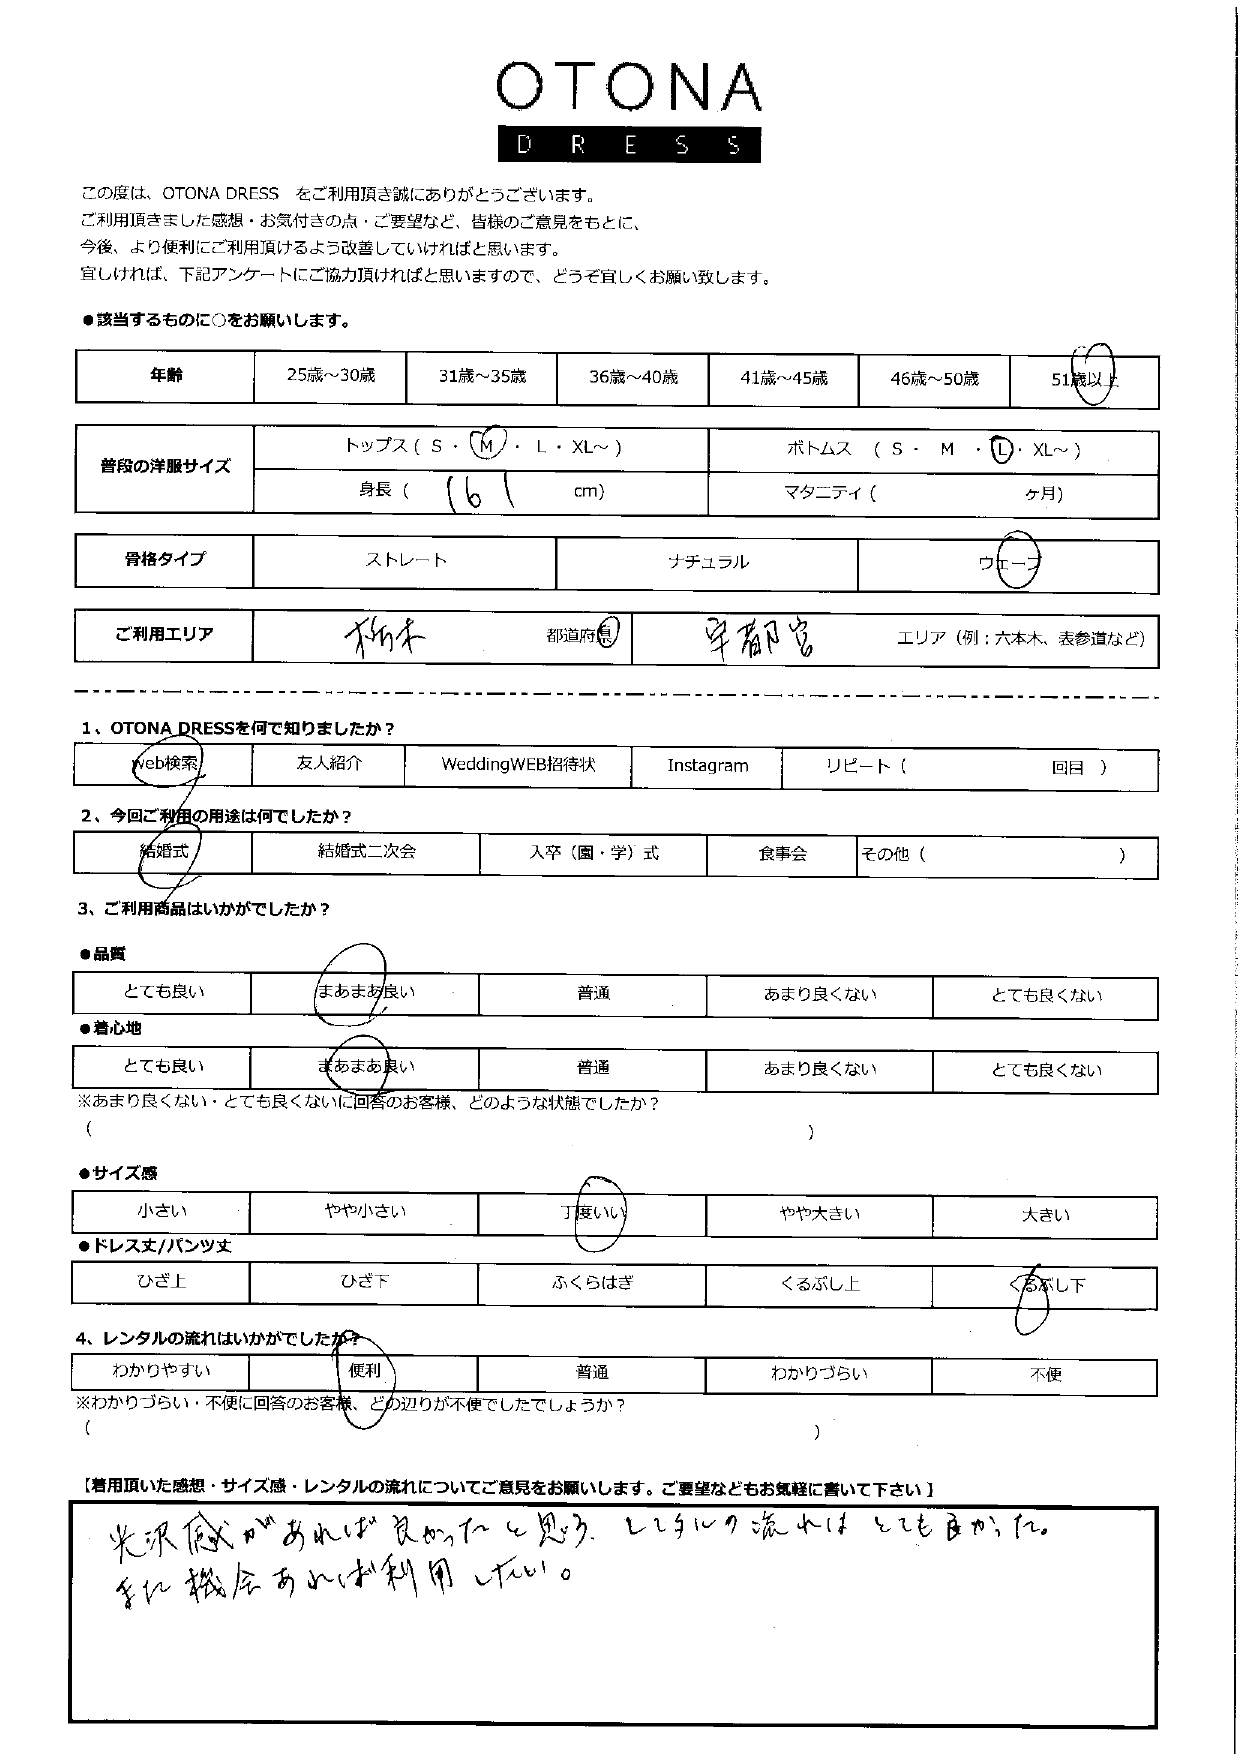 OTONA
DRESS
この度は、OTONA DRESS をご利用頂き誠にありがとうございます。
ご利用頂きました感想・お気付きの点・ご要望など、皆様のご意見をもとに、
今後、より便利にご利用頂けるよう改善していければと思います。
宜しければ、下記アンケートにご協力頂ければと思いますので、どうぞ宜しくお願い致します。
●該当するものに○をお願いします。
年齢 25歳～30歳 31歳～35歳 36歳～40歳 41歳～45歳 46歳～50歳 51歳以上
普段の洋服サイズ トップス ( S ・ M ・ L ・ XL～ ) ボトムス ( S ・ M ・ L ・ XL～ )
身長 ( 161 cm) マタニティ ( ヶ月)
骨格タイプ ストレート ナチュラル ウェーブ
ご利用エリア 栃木 都道府県 宇都宮 エリア（例：六本木、表参道など）
1、OTONA DRESSを何で知りましたか？
web検索 友人紹介 WeddingWEB招待状 Instagram リピート ( 回目 )
2、今回ご利用の用途は何でしたか？
結婚式 結婚式二次会 入卒（園・学）式 食事会 その他 ( )
3、ご利用商品はいかがでしたか？
●品質
とても良い まあまあ良い 普通 あまり良くない とても良くない
●着心地
とても良い まあまあ良い 普通 あまり良くない とても良くない
※あまり良くない・とても良くないに回答のお客様、どのような状態でしたか？
( )
●サイズ感
小さい やや小さい 丁度いい やや大きい 大きい
●ドレス丈/パンツ丈
ひざ上 ひざ下 ふくらはぎ くるぶし上 くるぶし下
4、レンタルの流れはいかがでしたか？
わかりやすい 便利 普通 わかりづらい 不便
※わかりづらい・不便に回答のお客様、どの辺りが不便でしたでしょうか？
( )
【着用頂いた感想・サイズ感・レンタルの流れについてご意見をお願いします。ご要望などもお気軽に書いて下さい】
光沢感があれば良かったと思う. レンタルの流れはとても良かった。
また機会あれば利用したい。